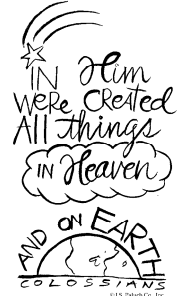 IN Him
WeRe CReATeD
All things
IN Heaven
AND ON EARTH
COLOSSIANS
©J.S. Paluch Co., Inc.